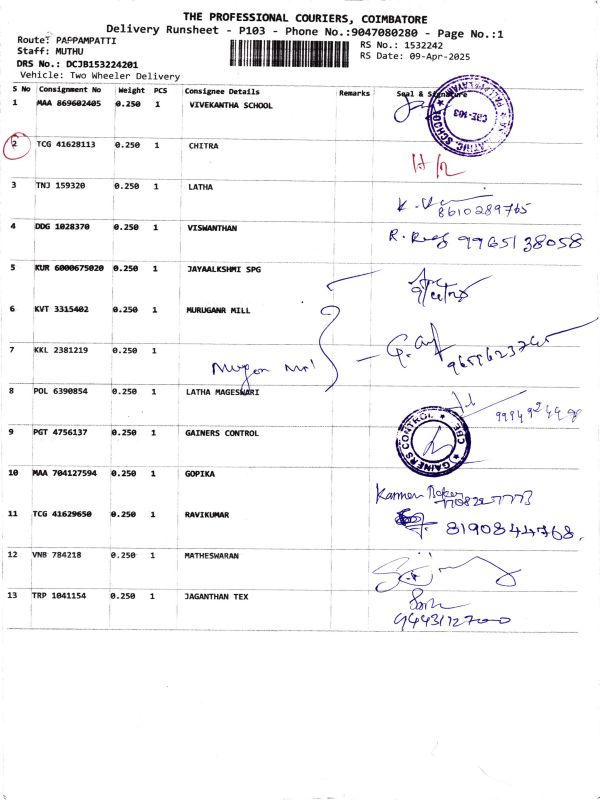 THE PROFESSIONAL COURIERS, COIMBATORE
Delivery Runsheet - P103 - Phone No.:9047080280 - Page No.:1
Route: PAPPAMPATTI
RS No.: 1532242
Staff: MUTHU
RS Date: 09-Apr-2025
DRS No.: DCJB153224201
Vehicle: Two Wheeler Delivery
S No Consignment No Weight PCS Consignee Details Remarks Seal & Signature
1 MAA 869602405 0.250 1 VIVEKANTHA SCHOOL
CBE-103
2 TCG 41628113 0.250 1 CHITRA
3 TNJ 159320 0.250 1 LATHA
8610289765
4 DDG 1028370 0.250 1 VISWANTHAN
9965138058
5 KUR 6000675020 0.250 1 JAYAALKSHMI SPG
6 KVT 3315402 0.250 1 MURUGANR MILL
7 KKL 2381219 0.250 1
8 POL 6390854 0.250 1 LATHA MAGESWARI
9 PGT 4756137 0.250 1 GAINERS CONTROL
GAINERS CONTROL * CBE *
10 MAA 704127594 0.250 1 GOPIKA
11 TCG 41629650 0.250 1 RAVIKUMAR
8190844768.
12 VNB 784218 0.250 1 MATHESWARAN
13 TRP 1041154 0.250 1 JAGANTHAN TEX